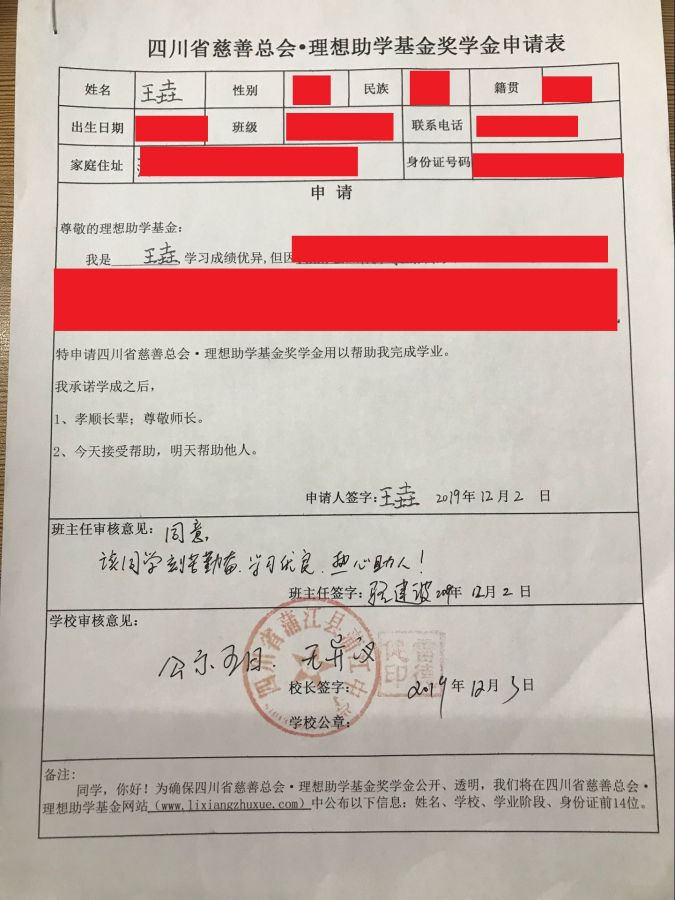 四川省慈善总会•理想助学基金奖学金申请表
姓名 王垚 性别 民族 籍贯
出生日期 班级 联系电话
家庭住址 身份证号码
申 请
尊敬的理想助学基金：
我是 王垚 ,学习成绩优异,但因
特申请四川省慈善总会•理想助学基金奖学金用以帮助我完成学业。
我承诺学成之后，
1、孝顺长辈；尊敬师长。
2、今天接受帮助，明天帮助他人。
申请人签字:王垚 2019年12月2日
班主任审核意见：同意。
该同学刻苦勤奋、学习优良、热心助人！
班主任签字: 建波 2019年12月2日
学校审核意见：
公示五日、无异议
四川省蒲江县蒲江中学
校长签字: 2019年12月3日
学校公章:
备注:
同学，你好！为确保四川省慈善总会•理想助学基金奖学金公开、透明，我们将在四川省慈善总会•
理想助学基金网站（www.lixiangzhuxue.com）中公布以下信息：姓名、学校、学业阶段、身份证前14位。